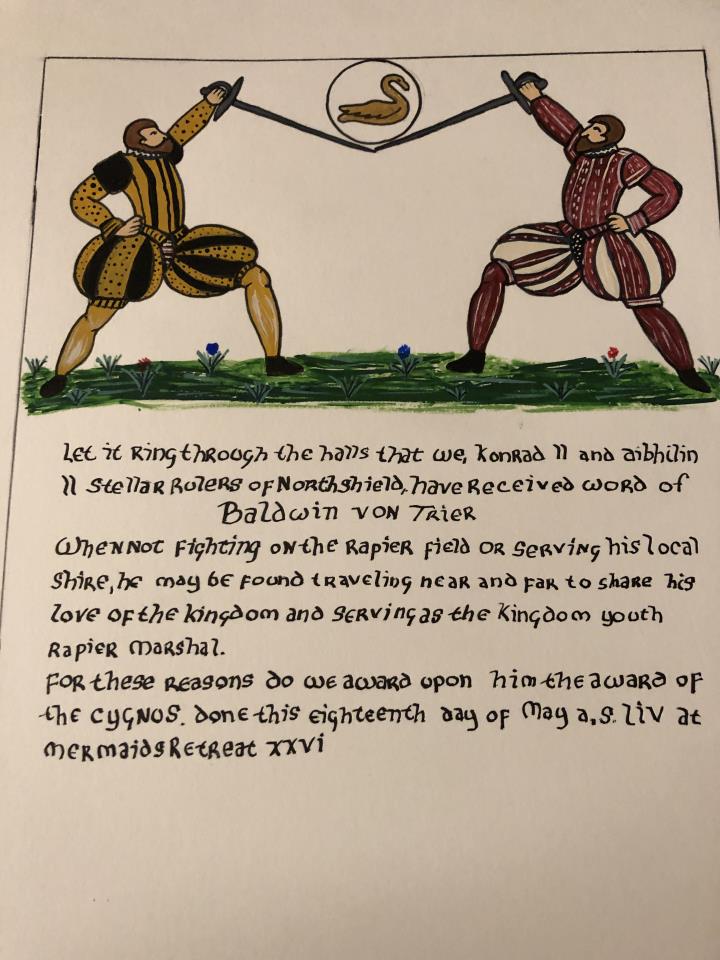 Let it Ring through the halls that we, Konrad II and aibhilin
II Stellar Rulers of Northshield, have Received word of
Baldwin von Trier
When not fighting on the Rapier field or serving his local
shire, he may be found traveling near and far to share his
love of the kingdom and serving as the Kingdom youth
Rapier Marshal.
For these Reasons do we award upon him the award of
the Cygnus. done this eighteenth day of May a.S. LIV at
Mermaids Retreat XXVI